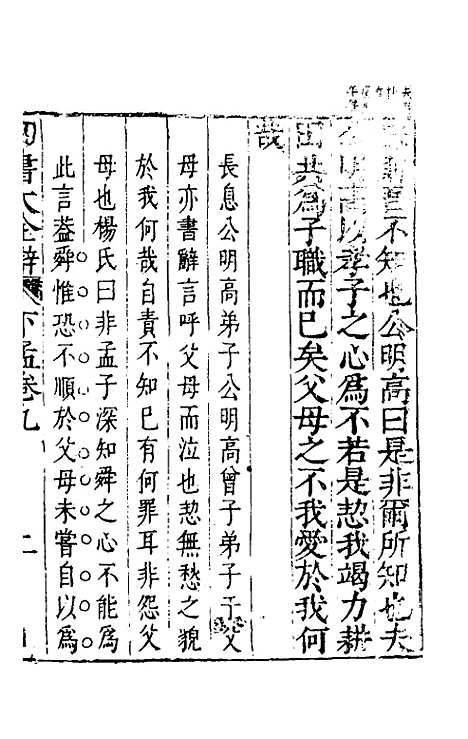 不知也公明高曰是非爾所知也夫
公明高以孝子之心爲不若是恝我竭力耕
田共爲子職而已矣父母之不我愛於我何
哉
長息公明高弟子公明高曾子弟子于父
母亦書辭言呼父母而泣也恝無愁之貌
於我何哉自責不知已有何罪耳非怨父
母也楊氏曰非孟子深知舜之心不能爲
此言蓋舜惟恐不順於父母未嘗自以爲
四書大全辨 下孟卷九 二